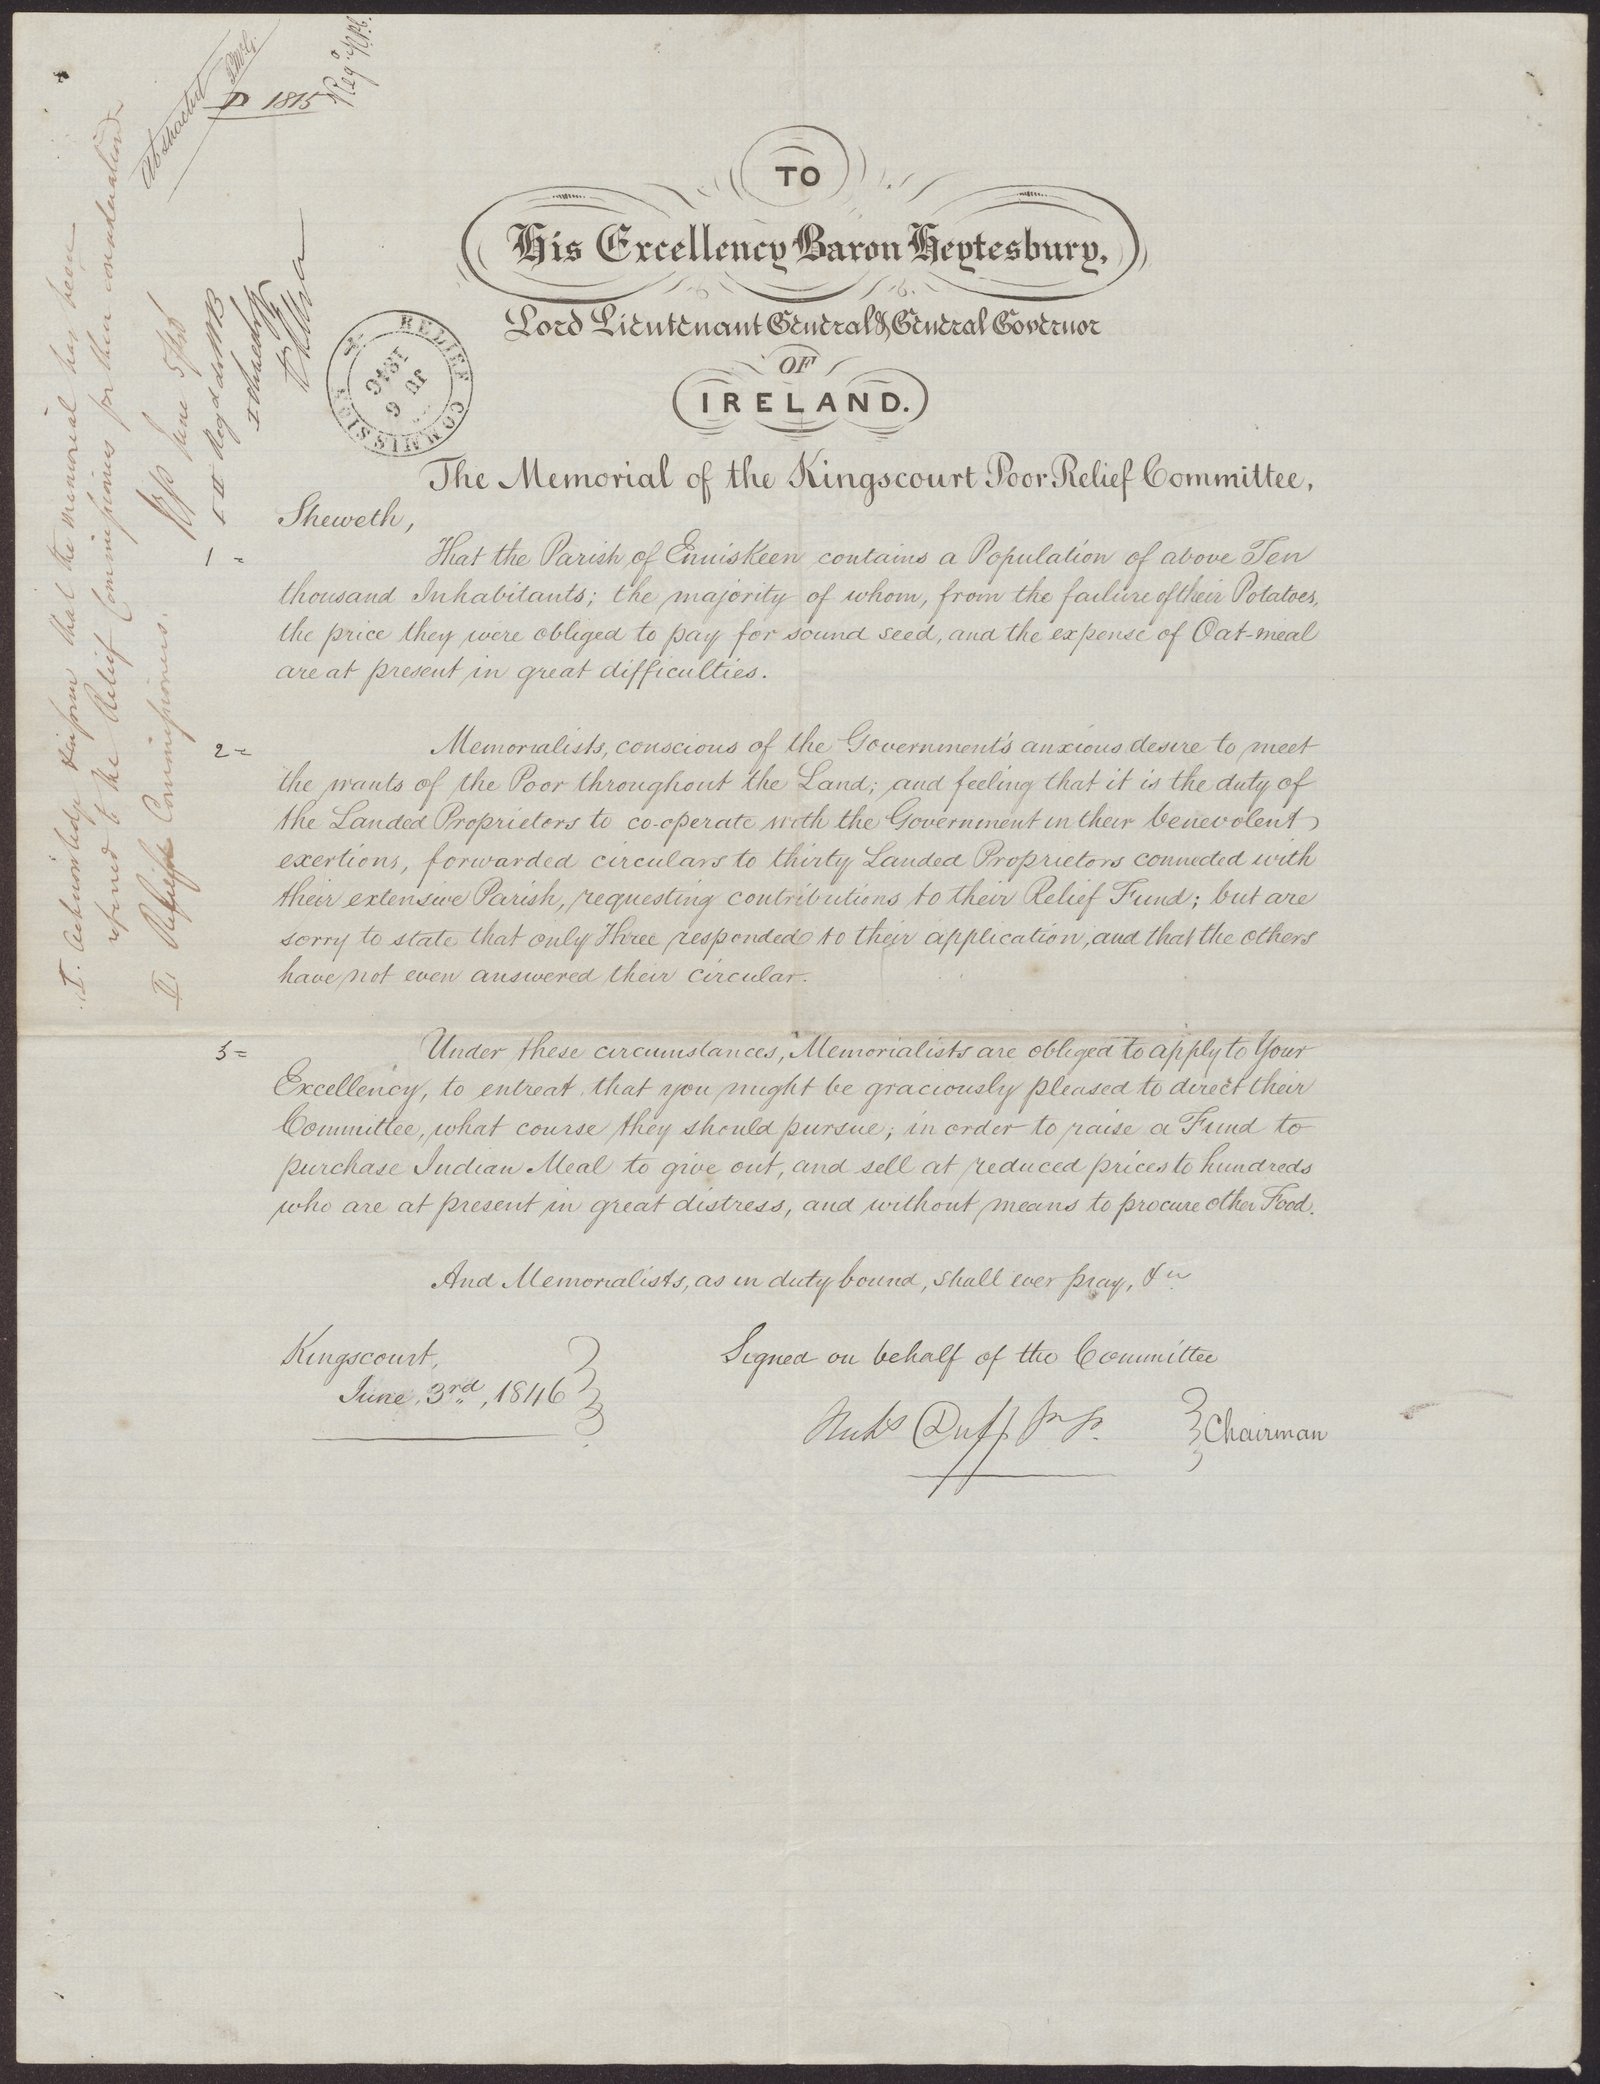 Abstracted
D 1815
TO
His Excellency Baron Heytesbury,
Lord Lieutenant General & General Governor
OF
IRELAND.
RELIEF COMMISSION
JU 6
1846
The Memorial of the Kingscourt Poor Relief Committee,
Sheweth,
1 = That the Parish of Enniskeen contains a Population of above Ten
thousand Inhabitants; the majority of whom, from the failure of their Potatoes,
the price they were obliged to pay for sound seed, and the expense of Oat-meal
are at present in great difficulties.
2 = Memorialists, conscious of the Government's anxious desire to meet
the wants of the Poor throughout the Land; and feeling that it is the duty of
the Landed Proprietors to co-operate with the Government in their benevolent
exertions, forwarded circulars to thirty Landed Proprietors connected with
their extensive Parish, requesting contributions to their Relief Fund; but are
sorry to state that only Three responded to their application, and that the others
have not even answered their circular.
3 = Under these circumstances, Memorialists are obliged to apply to Your
Excellency, to entreat that you might be graciously pleased to direct their
Committee, what course they should pursue; in order to raise a Fund to
purchase Indian Meal to give out, and sell at reduced prices to hundreds
who are at present in great distress, and without means to procure other Food.
And Memorialists, as in duty bound, shall ever pray, &c
Kingscourt,
June, 3rd, 1846
Signed on behalf of the Committee
Duff P.P. Chairman
I. Acknowledge & inform that the memorial has been
referred to the Relief Commissioners for their consideration
II. Relief Commissioners.
June 5/46
I II